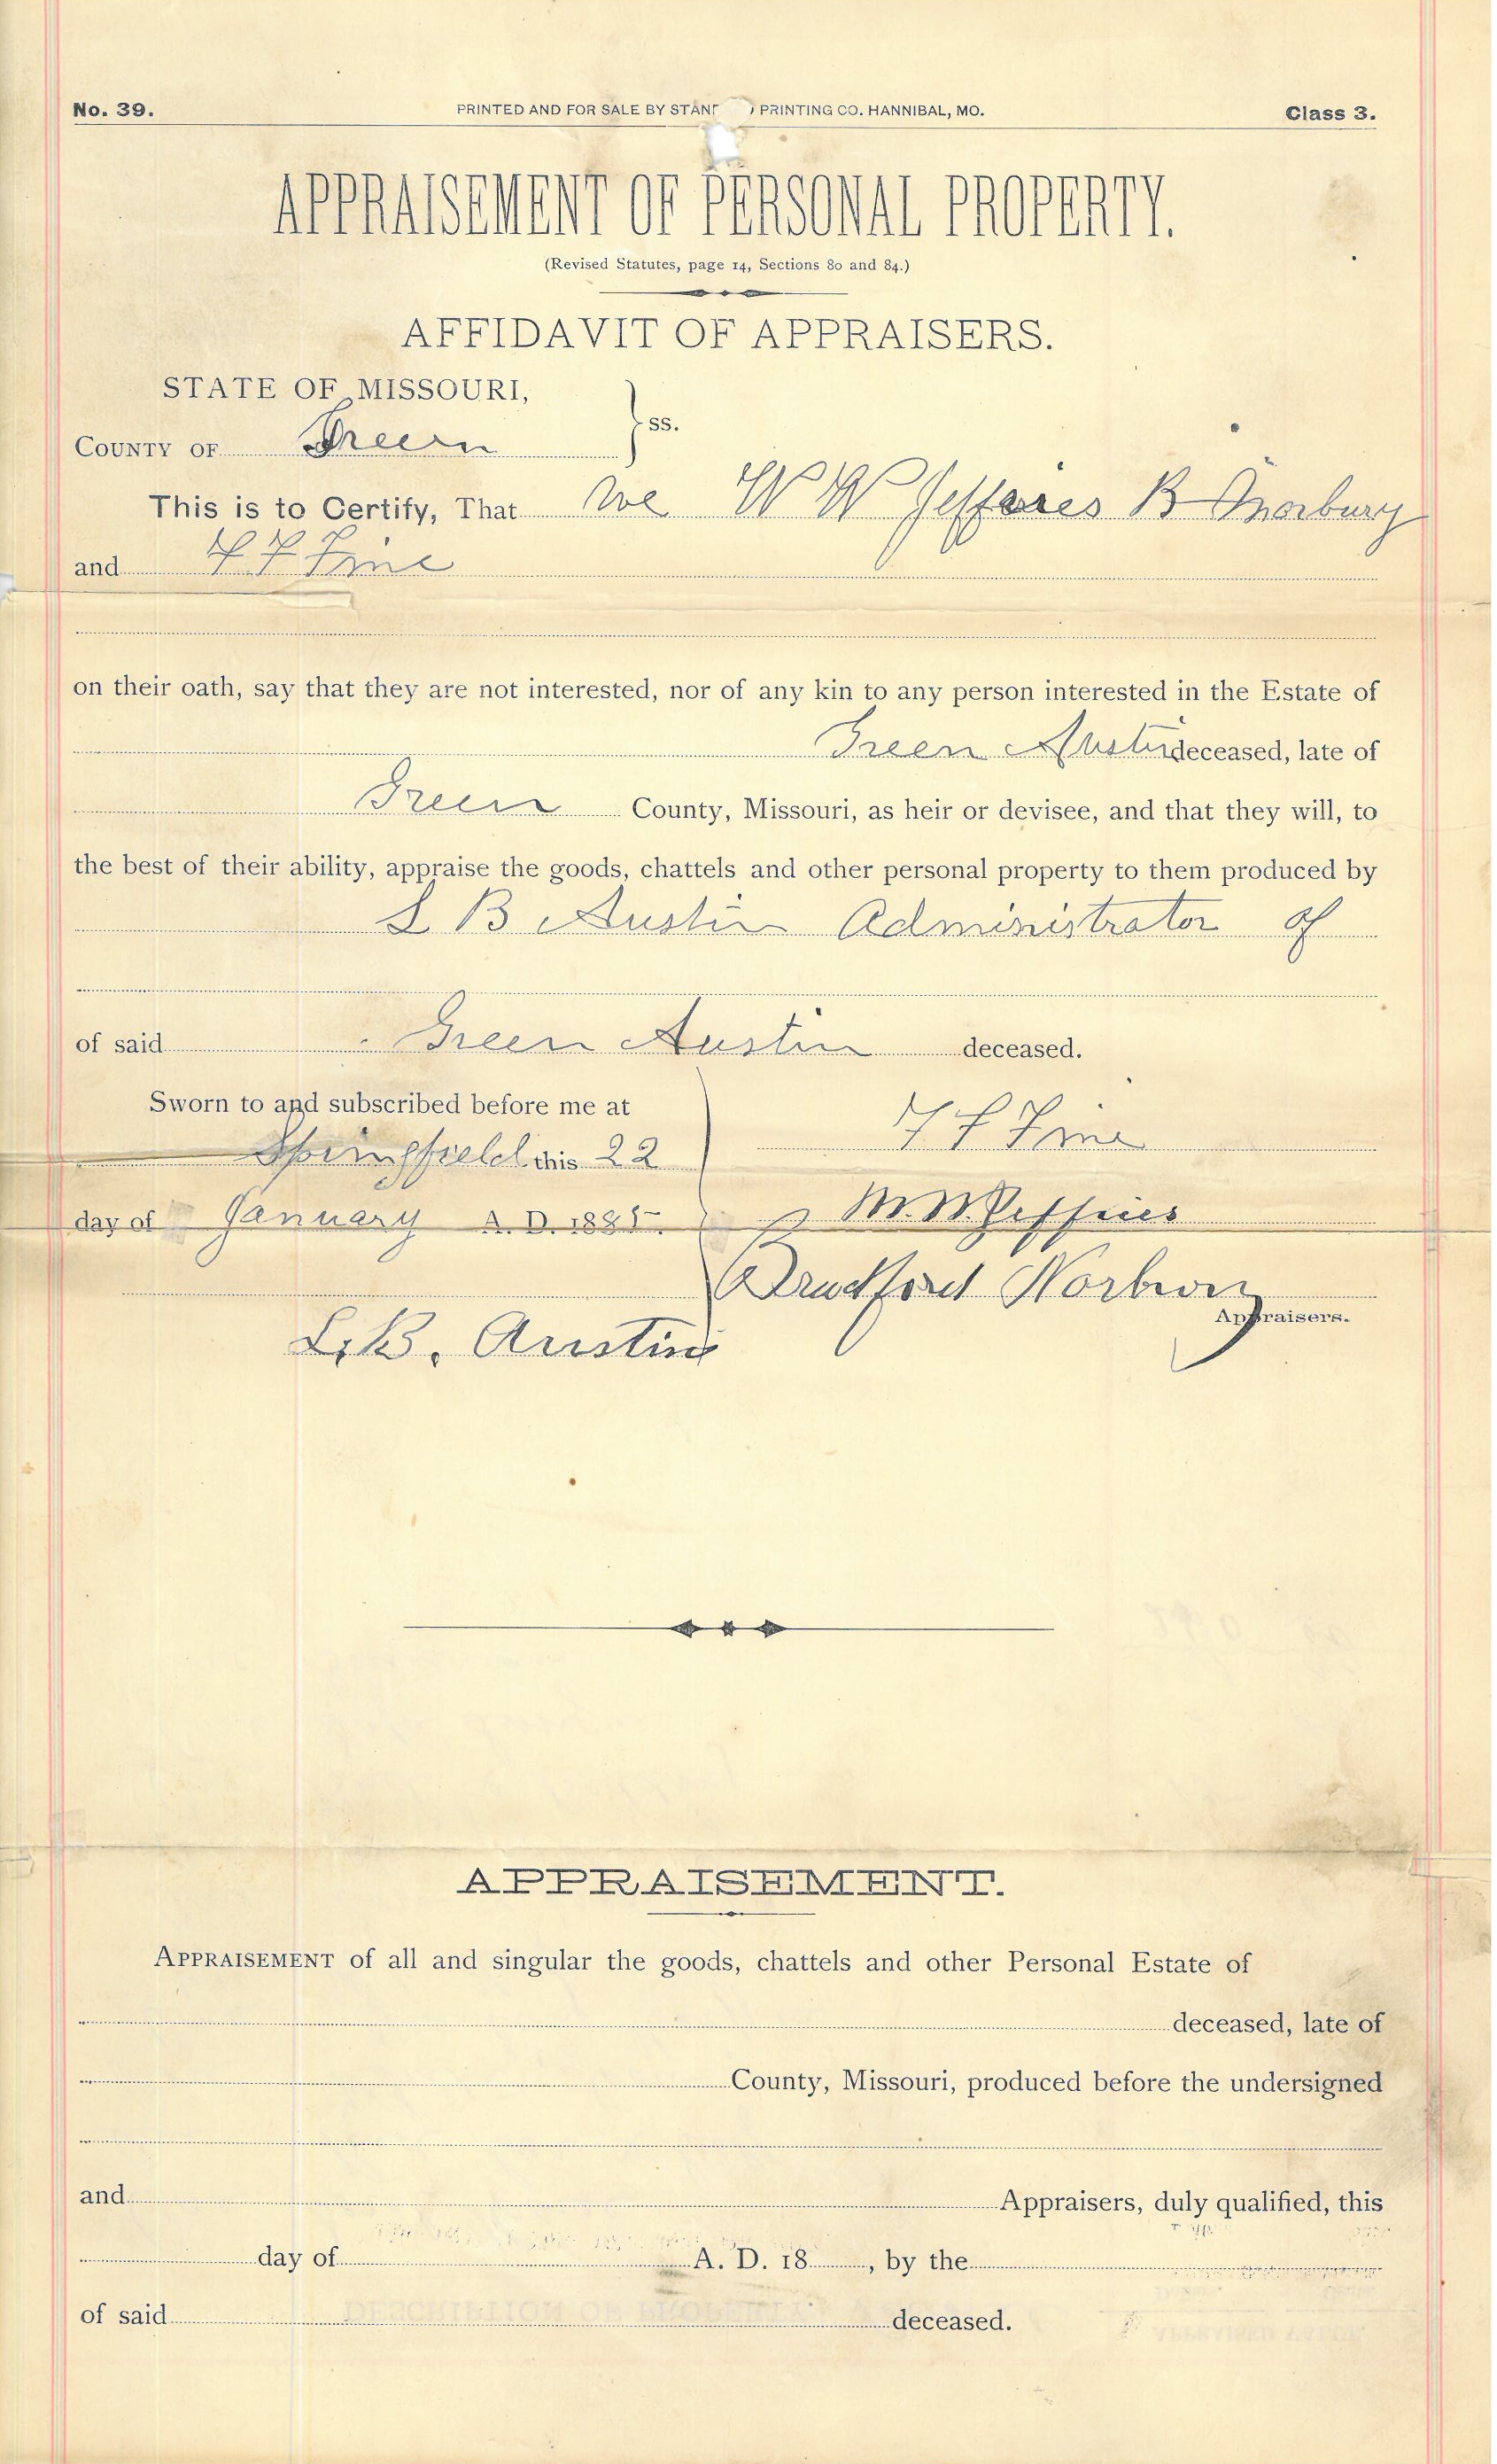 No. 39. PRINTED AND FOR SALE BY STAN PRINTING CO. HANNIBAL, MO. Class 3.
APPRAISEMENT OF PERSONAL PROPERTY.
(Revised Statutes, page 14, Sections 80 and 84.)
AFFIDAVIT OF APPRAISERS.
STATE OF MISSOURI,
COUNTY OF Green } ss.
This is to Certify, That we W W Jeffries B Norbury
and F F Fine
on their oath, say that they are not interested, nor of any kin to any person interested in the Estate of
Green Austin deceased, late of
Green County, Missouri, as heir or devisee, and that they will, to
the best of their ability, appraise the goods, chattels and other personal property to them produced by
L B Austin Administrator of
of said Green Austin deceased.
Sworn to and subscribed before me at
F F Fine
Springfield this 22
day of January A. D. 1885. W. W. Jeffries
Bradford Norbury
Appraisers.
L. B. Austin
APPRAISEMENT.
APPRAISEMENT of all and singular the goods, chattels and other Personal Estate of
deceased, late of
County, Missouri, produced before the undersigned
and Appraisers, duly qualified, this
day of A. D. 18 , by the
of said deceased.